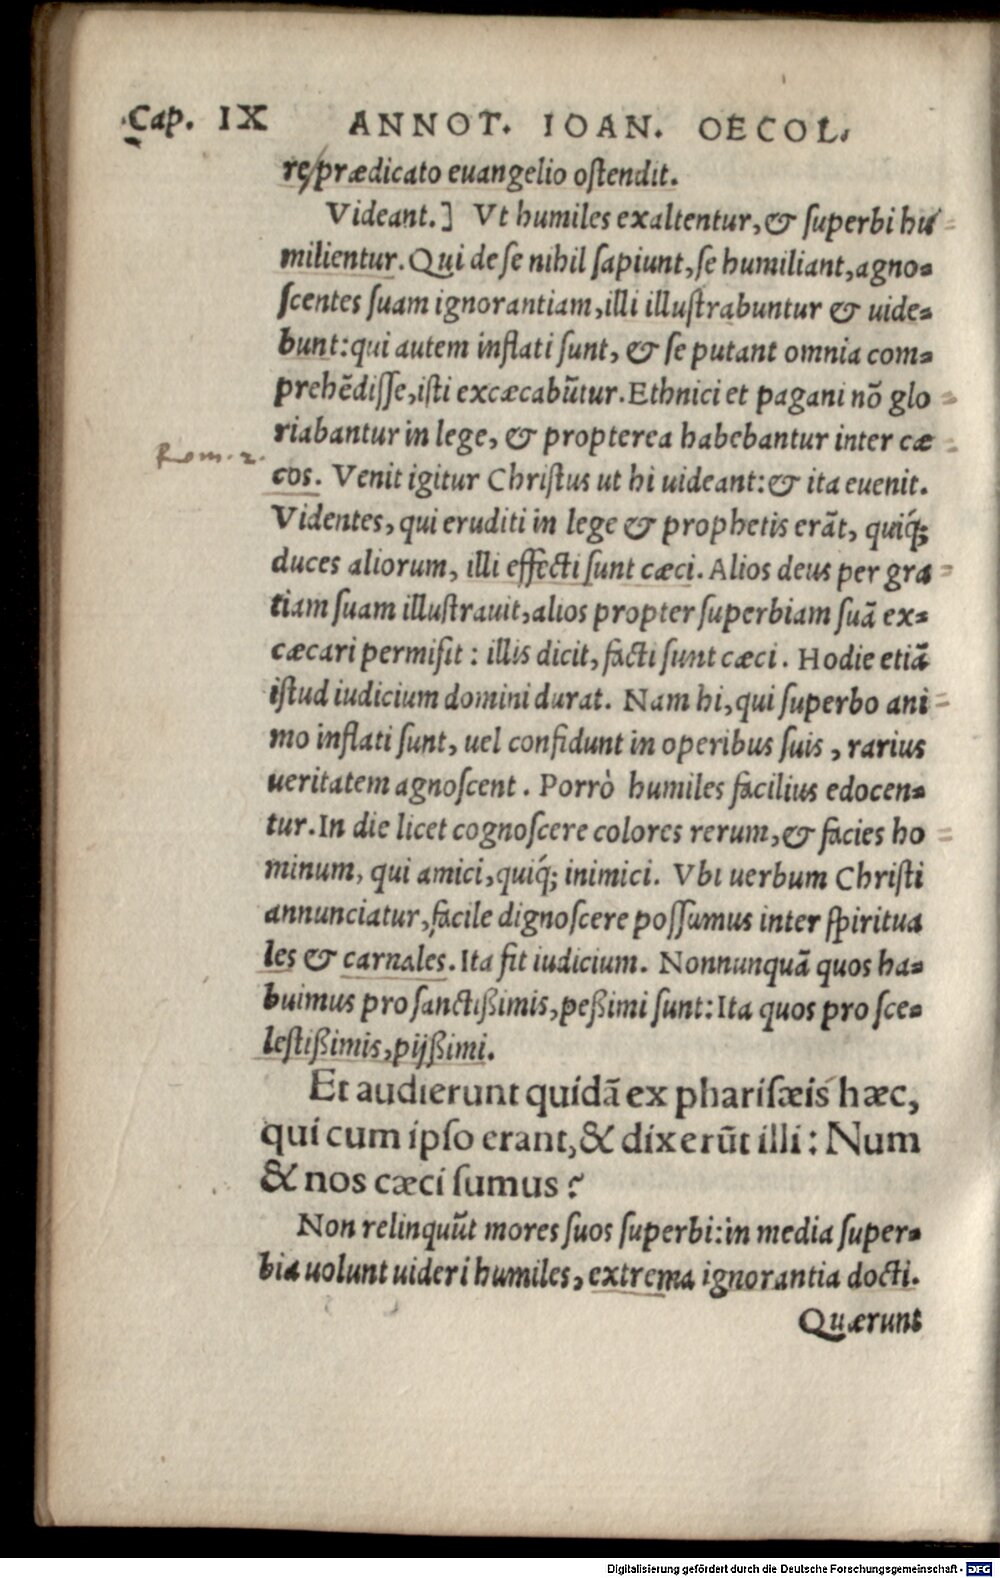 Cap. IX ANNOT. IOAN. OECOL.
re prædicato euangelio oſtendit.
Videant.] Vt humiles exaltentur, & ſuperbi hu
milientur. Qui de ſe nihil ſapiunt, ſe humiliant, agno-
ſcentes ſuam ignorantiam, illi illuſtrabuntur & uide-
bunt: qui autem inflati ſunt, & ſe putant omnia com-
prehẽdiſſe, iſti excæcabũtur. Ethnici et pagani nõ glo
riabantur in lege, & propterea habebantur inter cæ
Rom. 2.
cos. Venit igitur Chriſtus ut hi uideant: & ita euenit.
Videntes, qui eruditi in lege & prophetis erãt, quiq́;
duces aliorum, illi effecti ſunt cæci. Alios deus per gra
tiam ſuam illuſtrauit, alios propter ſuperbiam ſuã ex-
cæcari permiſit: illis dicit, facti ſunt cæci. Hodie etiã
iſtud iudicium domini durat. Nam hi, qui ſuperbo ani
mo inflati ſunt, uel confidunt in operibus ſuis, rarius
ueritatem agnoſcent. Porrò humiles facilius edocen-
tur. In die licet cognoſcere colores rerum, & facies ho
minum, qui amici, quiq́; inimici. Vbi uerbum Chriſti
annunciatur, facile dignoſcere poſſumus inter ſpiritua
les & carnales. Ita fit iudicium. Nonnunquã quos ha-
buimus pro ſanctißimis, peßimi ſunt: Ita quos pro ſce-
leſtißimis, pijßimi.
Et audierunt quidã ex phariſæis hæc,
qui cum ipſo erant, & dixerũt illi: Num
& nos cæci ſumus?
Non relinquũt mores ſuos ſuperbi: in media ſuper-
bia uolunt uideri humiles, extrema ignorantia docti.
Quærunt
Digitalisierung gefördert durch die Deutsche Forschungsgemeinschaft - DFG